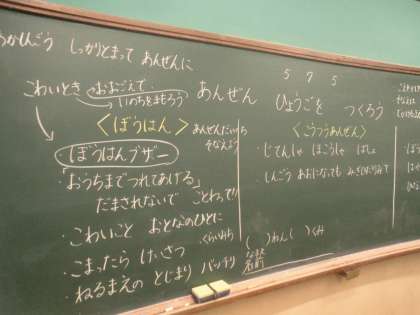 しっかりとまって あんぜんに
こわいとき おおごえで
いのちをまもろう
あんぜん ひょうごを つくろう
5 7 5
<ぼうはん>
あんぜんだいいち
そなえよう
ぼうはんブザー
「おうちまでつれてあげる」
だまされないで ことわって!!
・こわいこと おとなのひとに
・こまったら けいさつ
くらいみち
・ねるまえの とじまり バッチリ
<こうつうあんぜん>
・じてんしゃ ほこうしゃ
・しんごう あおになっても みぎひだりみて
( )ねん( )くみ
名前